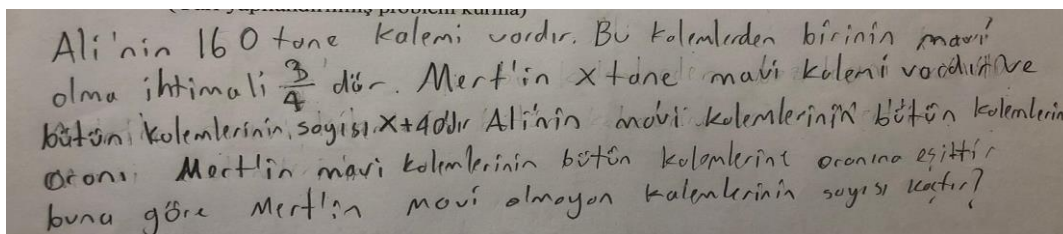 (Yarı yapılandırılmış problem kurma)
Ali'nin 160 tane kalemi vardır. Bu kalemlerden birinin mavi
olma ihtimali 3/4 dür. Mert'in x tane mavi kalemi vardır ve
bütün kalemlerinin sayısı x+40dır Ali'nin mavi kalemlerinin bütün kalemlerin
oranı Mert'in mavi kalemlerinin bütün kalemlerine oranına eşittir
buna göre Mert'in mavi olmayan kalemlerinin sayısı kaçtır?